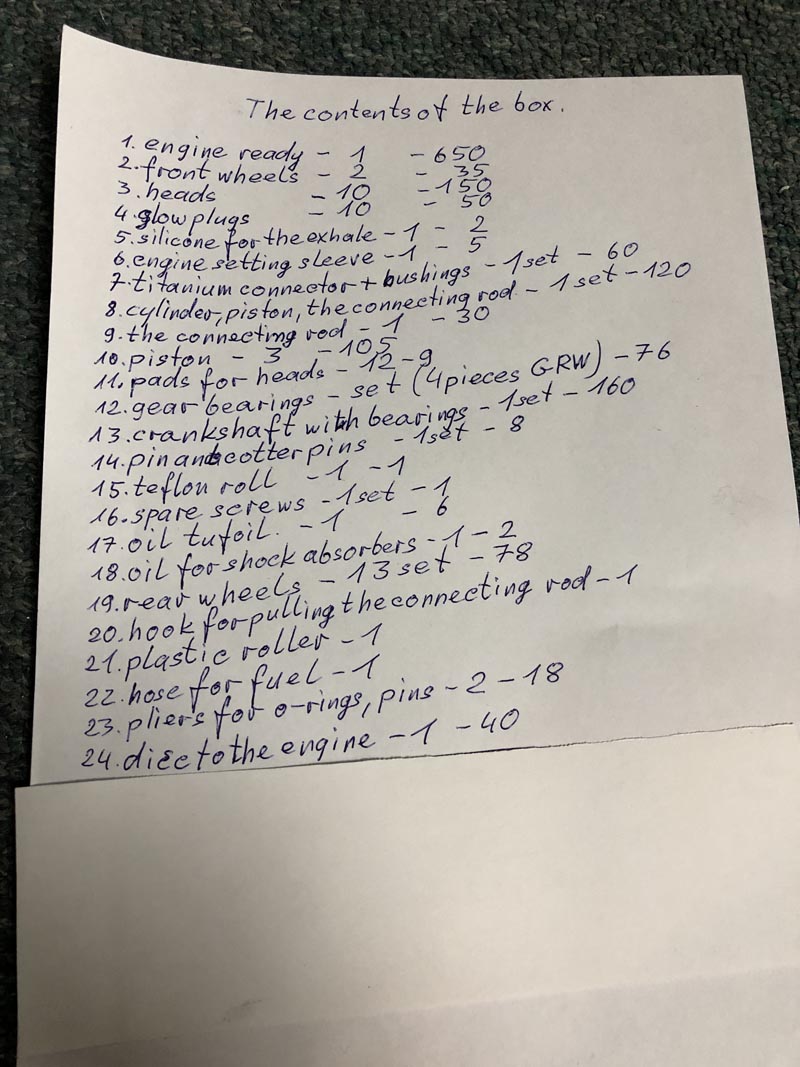 The contents of the box.
1. engine ready - 1 - 650
2. front wheels - 2 - 35
3. heads - 10 - 150
4. glow plugs - 10 - 50
5. silicone for the exhale - 1 - 2
6. engine setting sleeve - 1 - 5
7. titanium connector + bushings - 1set - 60
8. cylinder, piston, the connecting rod - 1set - 120
9. the connecting rod - 1 - 30
10. piston - 3 - 105
11. pads for heads - 12 - 9
12. gear bearings - set (4pieces GRW) - 76
13. crankshaft with bearings - 1set - 160
14. pin and cotter pins - 1set - 8
15. teflon roll - 1 - 1
16. spare screws - 1set - 1
17. oil tufoil. - 1 - 6
18. oil for shock absorbers - 1 - 2
19. rear wheels - 13 set - 78
20. hook for pulling the connecting rod - 1
21. plastic roller - 1
22. hose for fuel - 1
23. pliers for o-rings, pins - 2 - 18
24. to the engine - 1 - 40